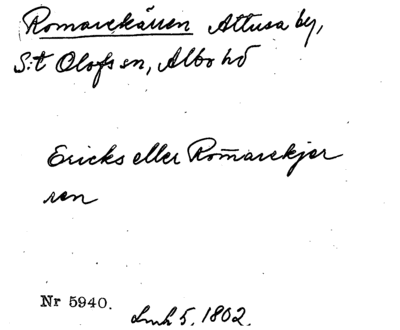 Romarekärren Attusa by,
S:t Olofs sn, Albo hd
Ericks eller Romarekjer
ren
Nr 5940.
Lmh 5, 1802.